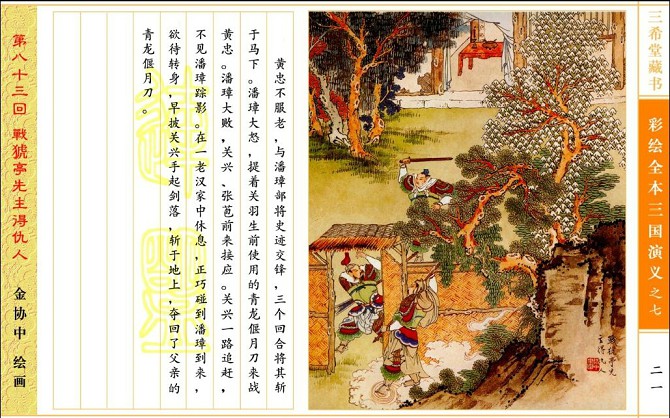 三希堂藏书
彩绘全本三国演义之七
二一
戰猇亭先
主得仇人
黄忠不服老,与潘璋部将史迹交锋,三个回合将其斩
于马下。潘璋大怒,提着关羽生前使用的青龙偃月刀来战
黄忠。潘璋大败,关兴、张苞前来接应。关兴一路追赶,
不见潘璋踪影。在一老汉家中休息,正巧碰到潘璋到来,
欲待转身,早披关兴手起剑落,斩于地上,夺回了父亲的
青龙偃月刀。
第八十三回 戰猇亭先主得仇人 金协中 绘画